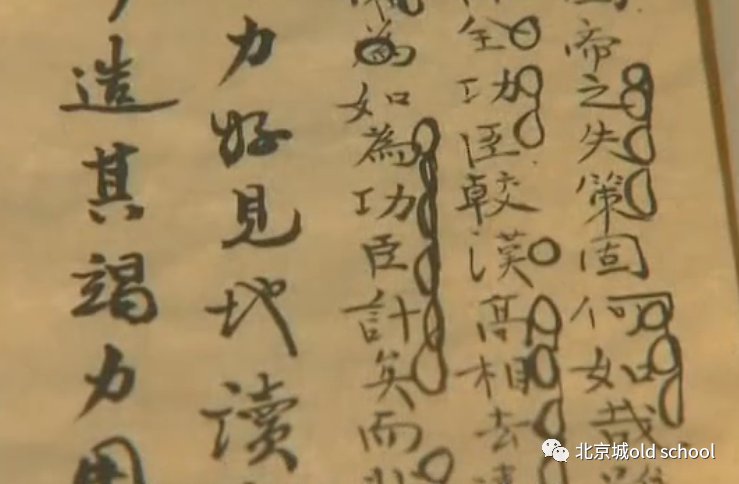 帝之失策固何如哉
全功臣較漢高相去
為如為功臣計矣而
力好見地讀
造其竭力
北京城old school